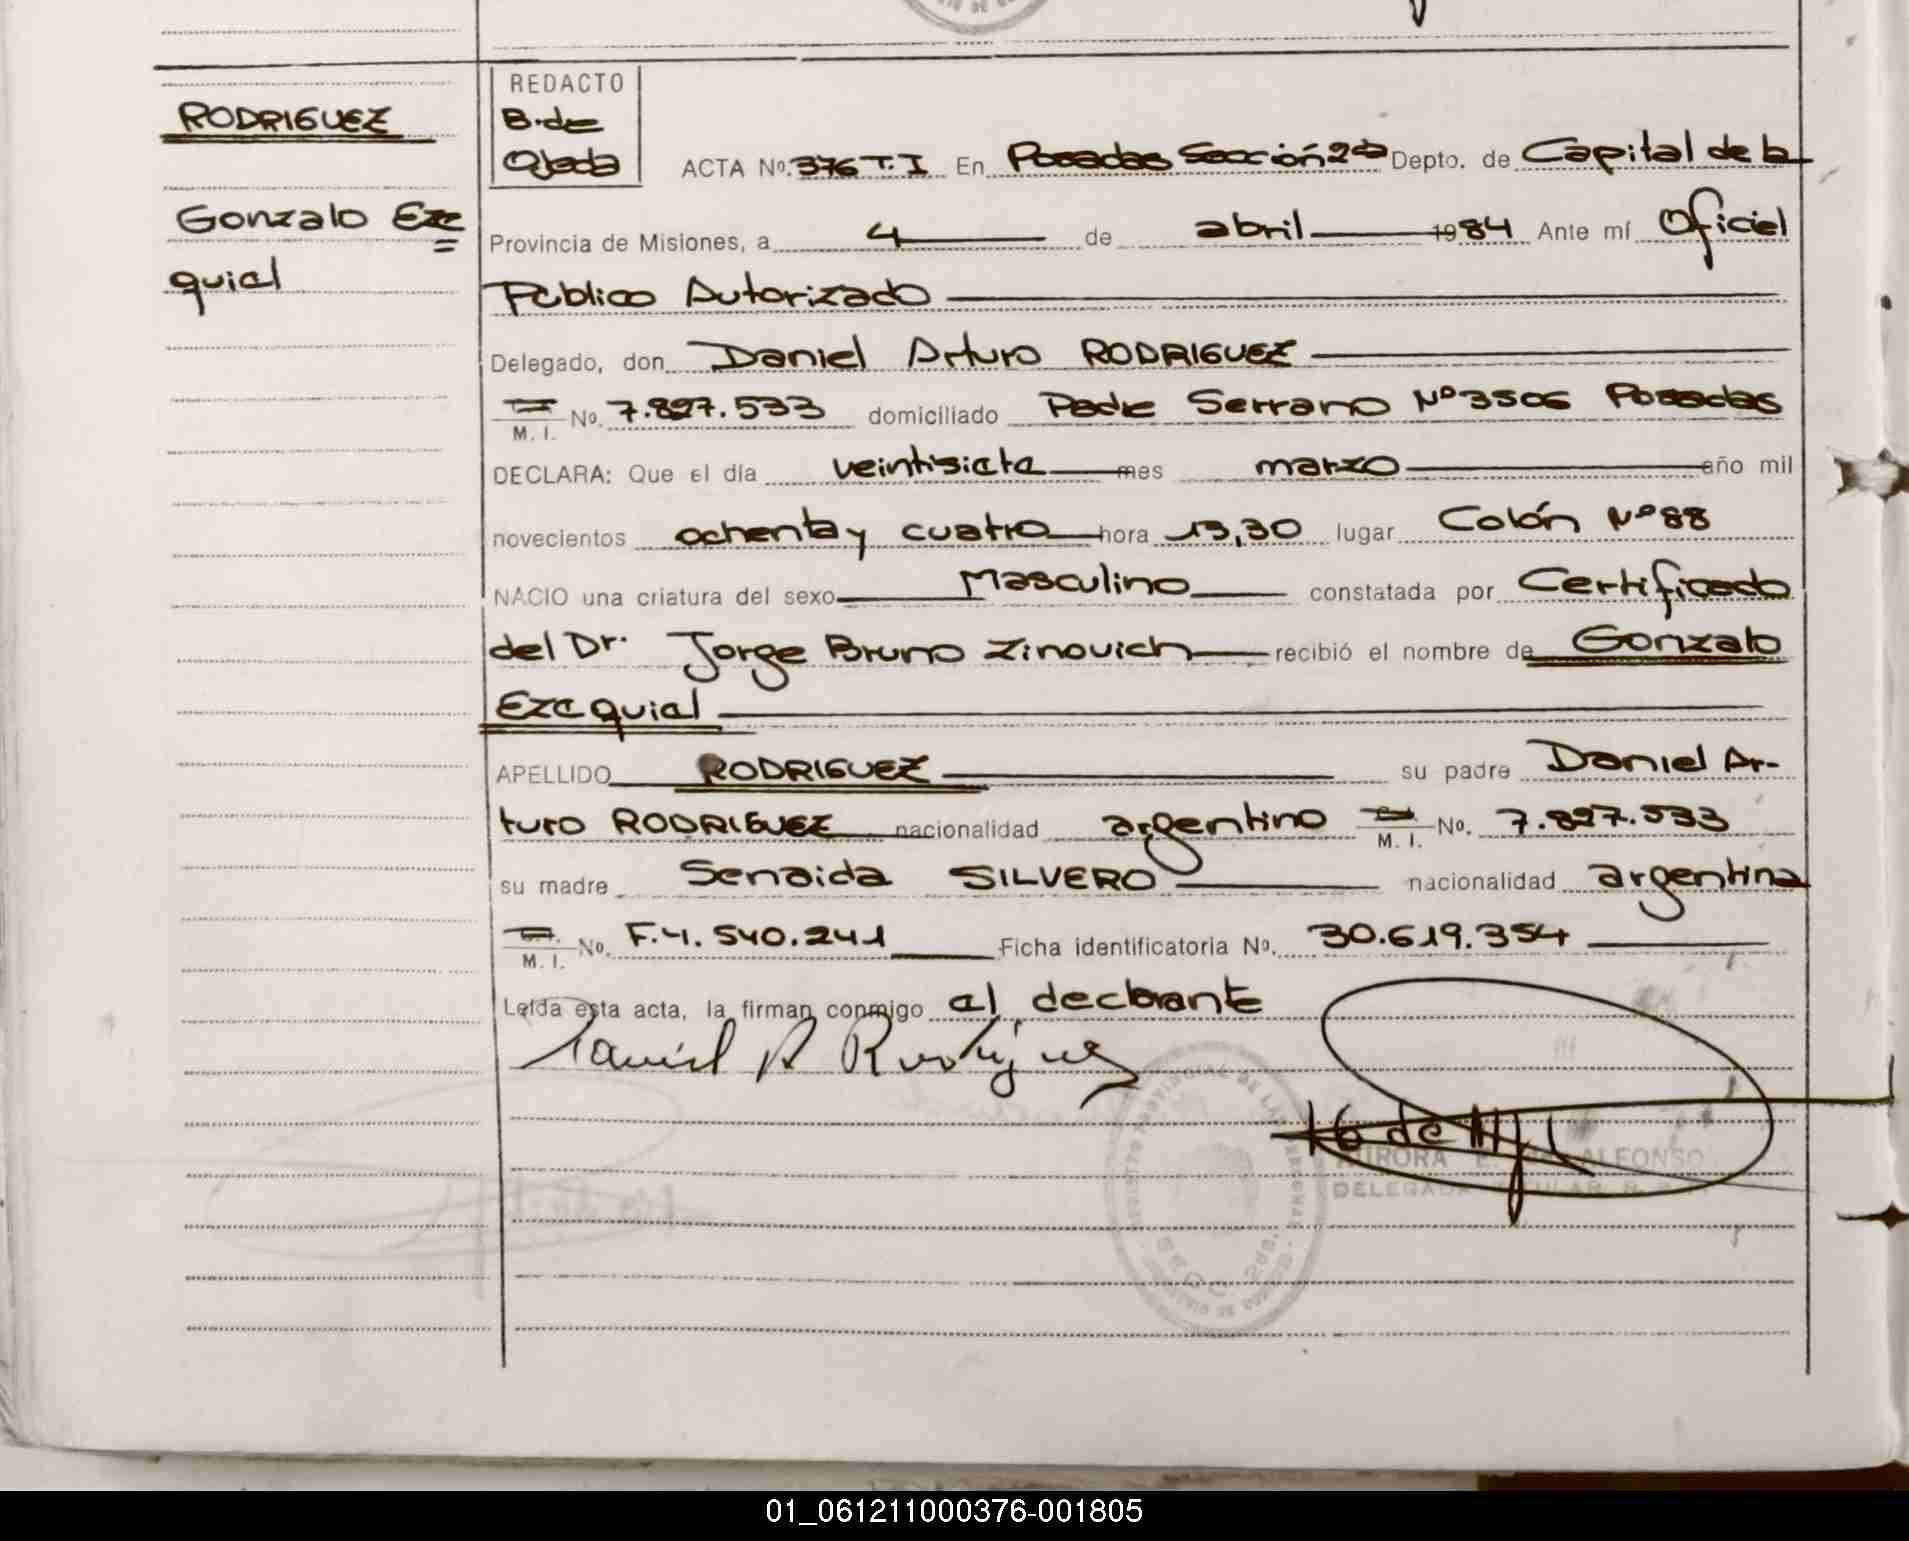 RODRIGUEZ
Gonzalo Eze
quiel
REDACTO
B. de
Ojeda
ACTA Nº. 376 T. I En Posadas Sección 2da Depto. de Capital de la
Provincia de Misiones, a 4 de abril 1984 Ante mí Oficial
Público Autorizado
Delegado, don Daniel Arturo RODRIGUEZ
M. I. Nº. 7.827.533 domiciliado Padre Serrano Nº 3506 Posadas
DECLARA: Que el día veintisiete mes marzo año mil
novecientos ochenta y cuatro hora 13,30 lugar Colón Nº 88
NACIO una criatura del sexo Masculino constatada por Certificado
del Dr. Jorge Bruno Zinovich recibió el nombre de Gonzalo
Ezequiel
APELLIDO RODRIGUEZ su padre Daniel Ar-
turo RODRIGUEZ nacionalidad argentino M. I. Nº. 7.827.533
su madre Senaida SILVERO nacionalidad argentina
M. I. Nº. F.4.540.241 Ficha identificatoria Nº. 30.619.354
Leída esta acta, la firman conmigo el declarante
Daniel A Rodriguez
AURORA E. ALFONSO
DELEGADA TITULAR
01_061211000376-001805